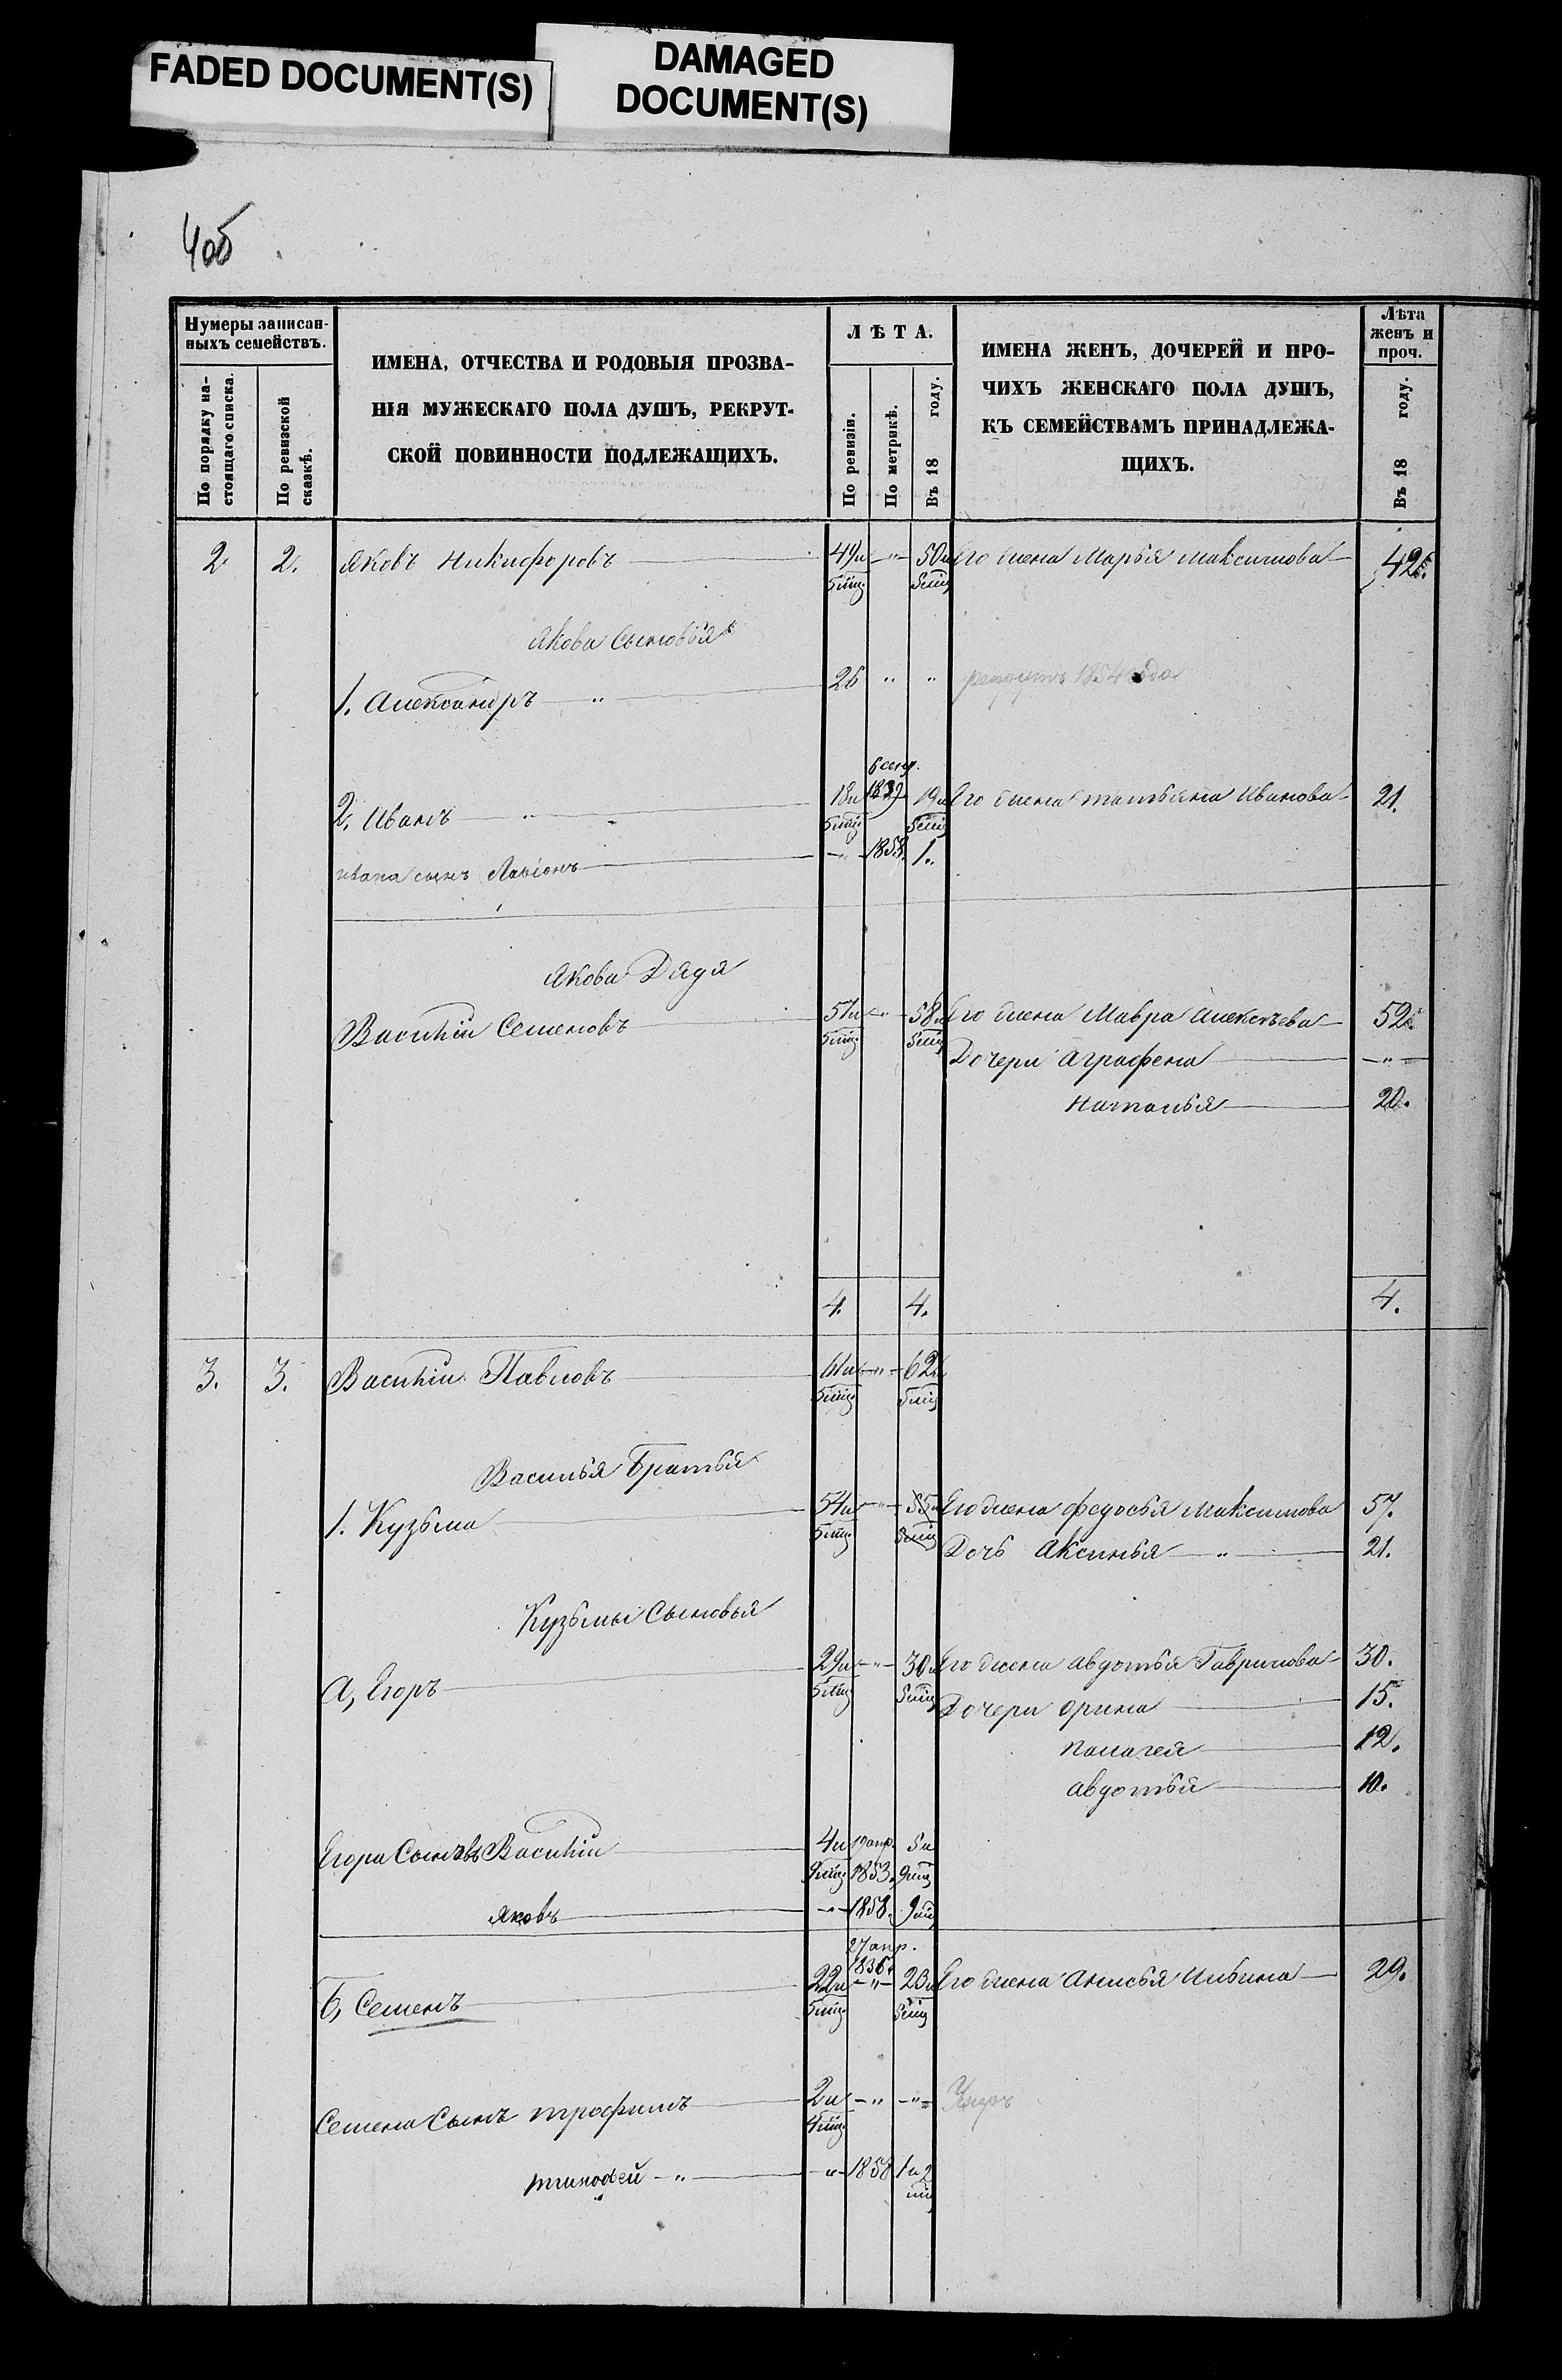 FADED DOCUMENT(S)
DAMAGED
DOCUMENT(S)
4об
Нумеры записан-
ныхъ семействъ.
По порядку на-
стоящаго списка.
По ревизской
сказкѣ.
ИМЕНА, ОТЧЕСТВА И РОДОВЫЯ ПРОЗВА-
НІЯ МУЖЕСКАГО ПОЛА ДУШЪ, РЕКРУТ-
СКОЙ ПОВИННОСТИ ПОДЛЕЖАЩИХЪ.
ЛѢТА.
По ревизіи.
По метрикѣ.
Въ 18 году.
ИМЕНА ЖЕНЪ, ДОЧЕРЕЙ И ПРО-
ЧИХЪ ЖЕНСКАГО ПОЛА ДУШЪ,
КЪ СЕМЕЙСТВАМЪ ПРИНАДЛЕЖА-
ЩИХЪ.
Лѣта
женъ и
проч.
Въ 18 году.
2 2. Яковъ Никифоровъ 49и - " - 50и Его жена Марья Максимова 42.
5 мц. 5 мц
Якова Сыновья
1. Александръ " 26 " " рекрутъ 1854 года
6 сент.
2, Иванъ " 18и 1839 19и Его жена татьяна Иванова 21.
5 мц. 5 мц
ивана сынъ Ларіонъ - " - 1858. 1.
Якова Дядя
Василій Семеновъ 57и - " - 58и Его жена Мавра Алексѣева 52.
5 мц. 5 мц
Дочери аграфена - " -
наталья 20.
4. 4. 4.
3. 3. Василій Павловъ 61и - " - 62и
5 мц. 5 мц
Василья Братья
1. Кузьма 54и - " - 55и Его жена федосья Максимова 57.
5 мц. 5 мц
Дочь Аксинья " 21.
Кузьмы Сыновья
А, Егоръ 29и - " - 30и Его жена авдотья Гаврилова 30.
5 мц. 5 мц
Дочери орина 15.
палагея 12.
авдотья 10.
Егора Василій 4и 19 апр. 5и
9 мц. 1853. 9 мц
Яковъ - " - 1858. 9 мц
27 апр.
1836.
Б, Семенъ 22и - " - 23и Его жена Анисья Ильина 29.
5 мц. 5 мц
Семена Сынъ трофимъ 2и - " - " Умеръ
4 мц.
тимофей - " - " 1858 1и 2
мц